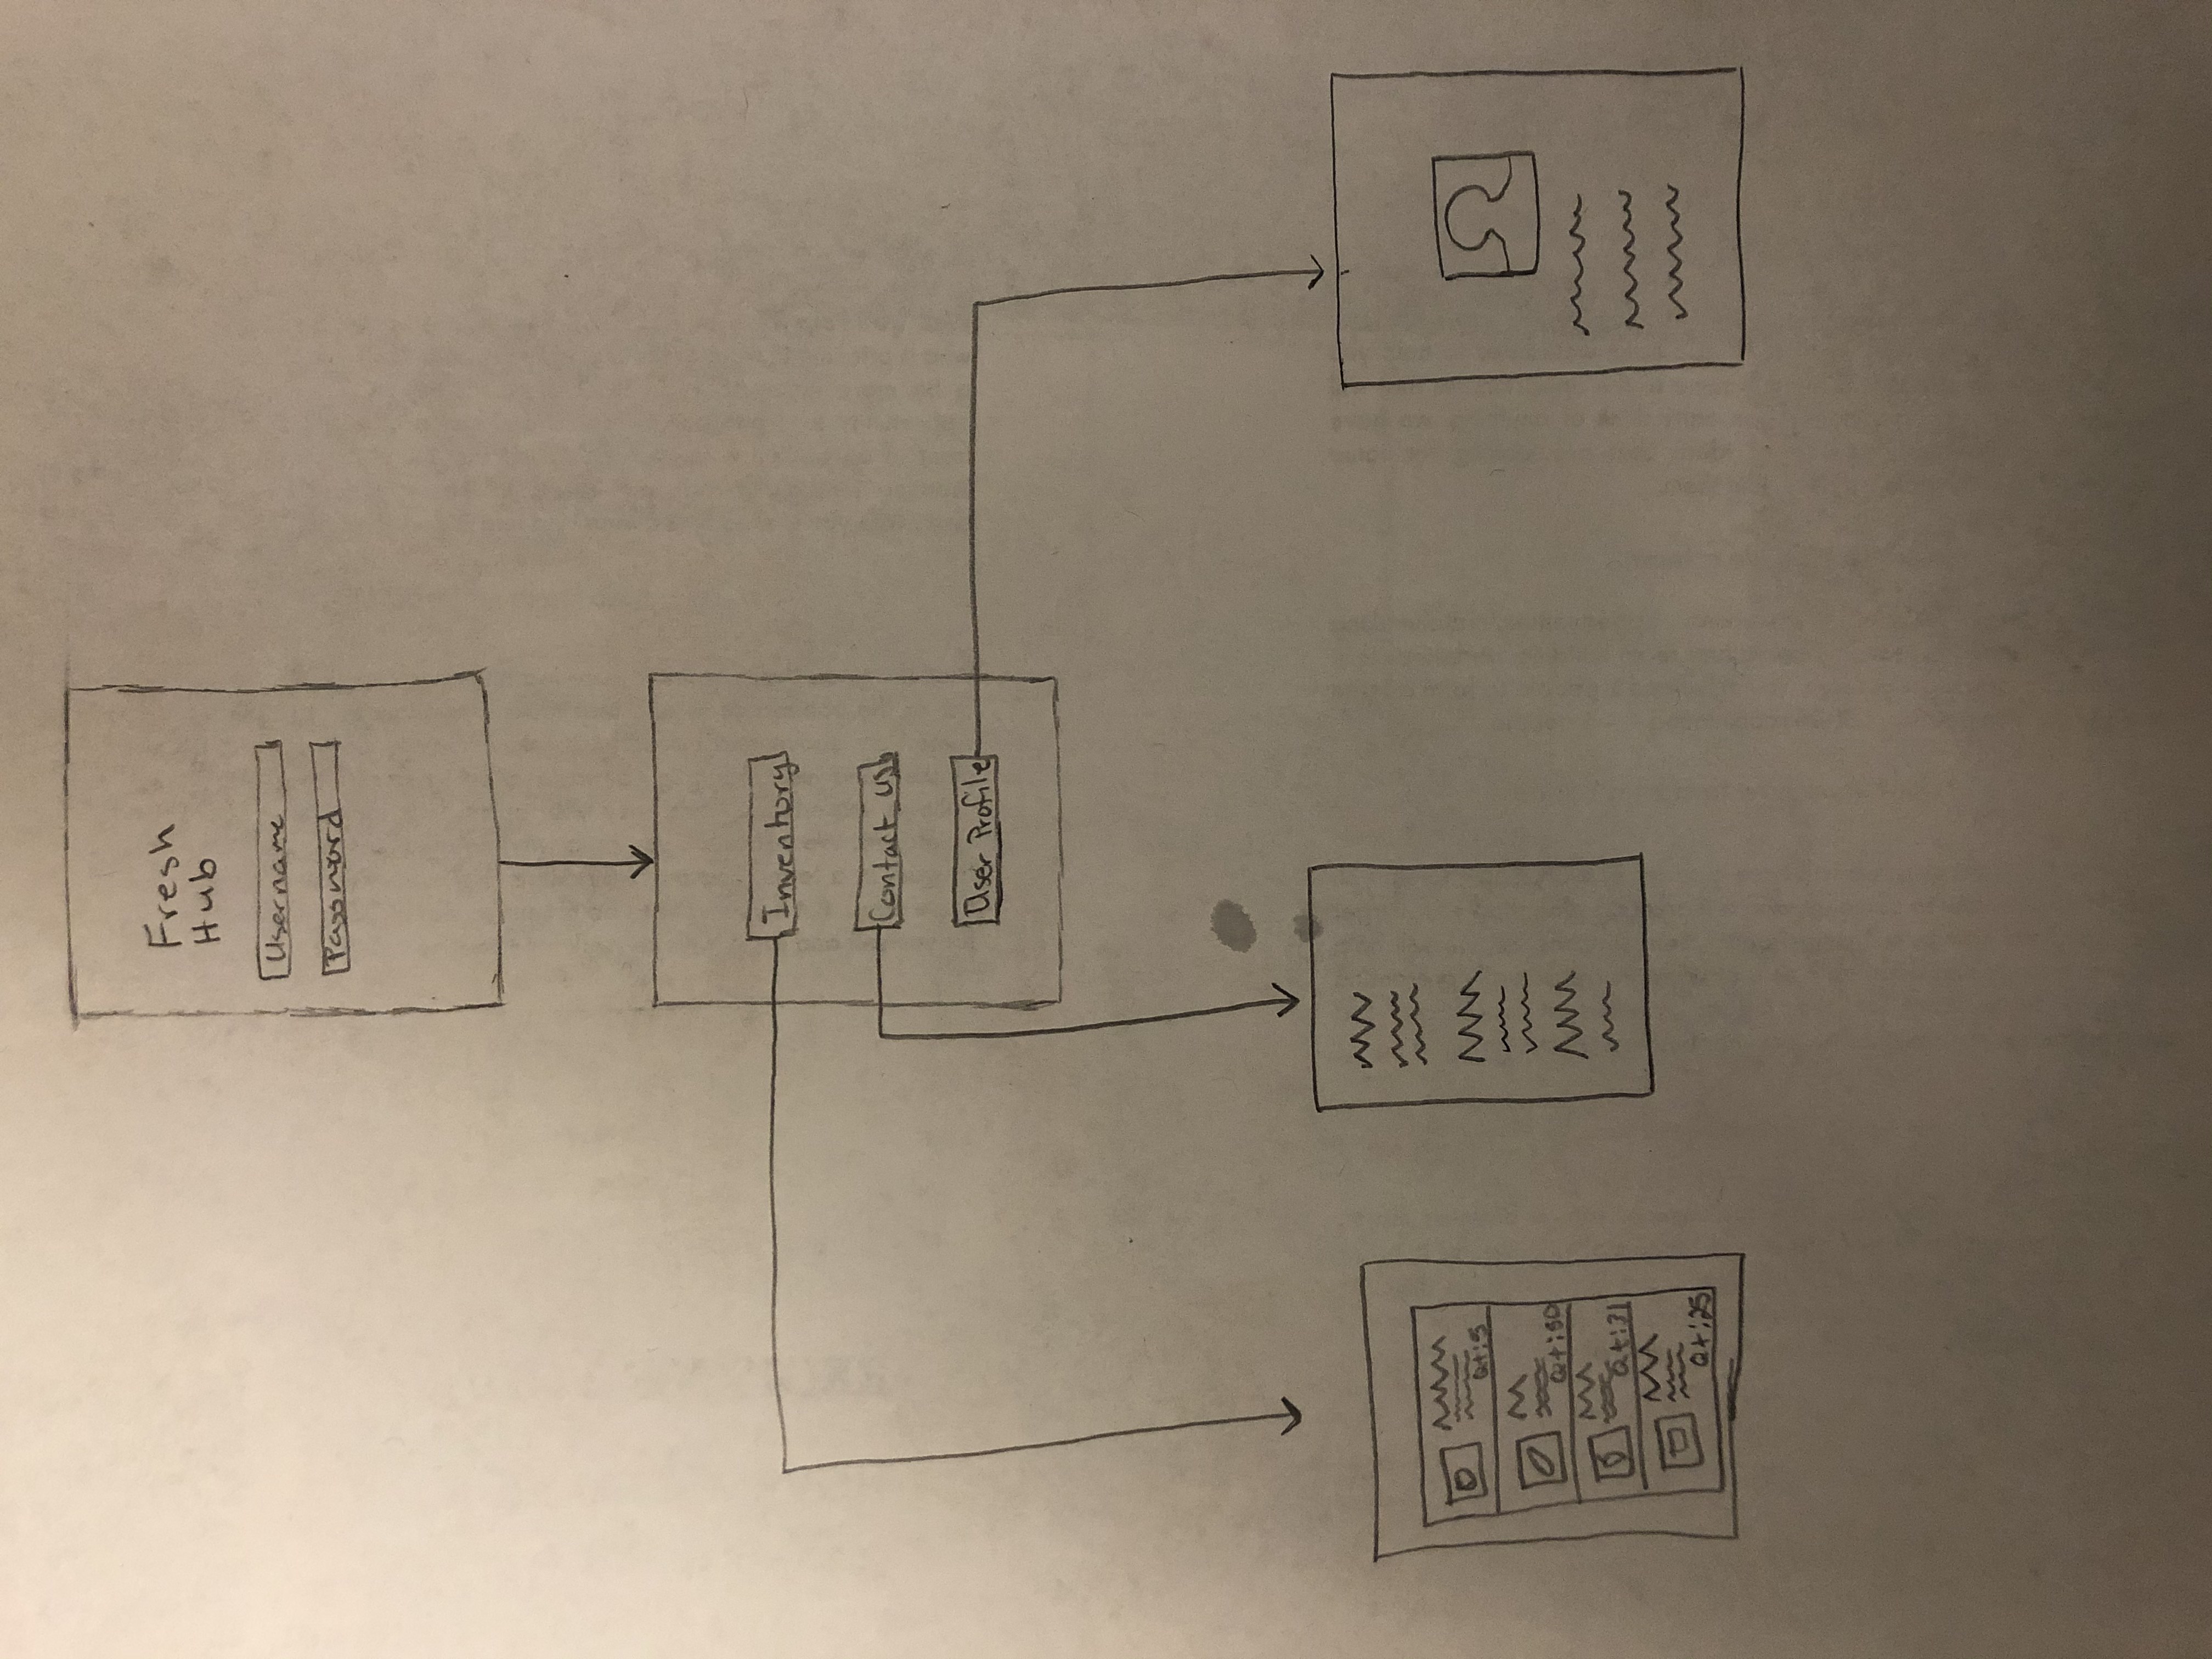 Fresh
Hub
Username
Password
Inventory
Contact us
User Profile
Qt:5
Qt:50
Qt:21
Qt:25